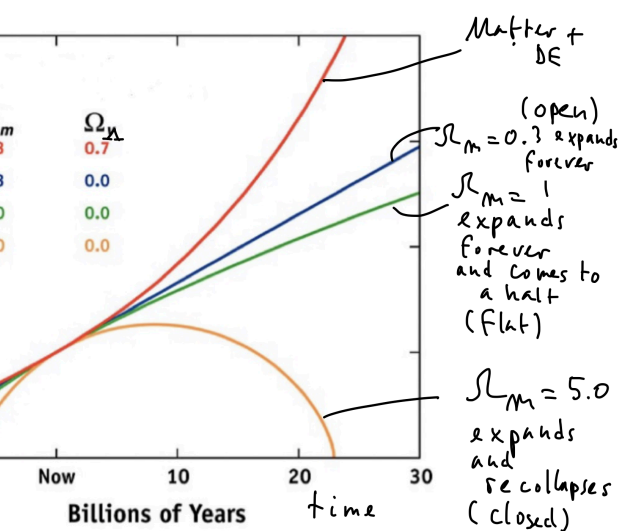 Matter +
DE
(open)
Ω_m = 0.3 expands
forever
Ω_m = 1
expands
forever
and comes to
a halt
(flat)
Ω_m = 5.0
expands
and
recollapses
(closed)
m Ω_Λ
3 0.7
3 0.0
0 0.0
0 0.0
Now 10 20 30
Billions of Years time